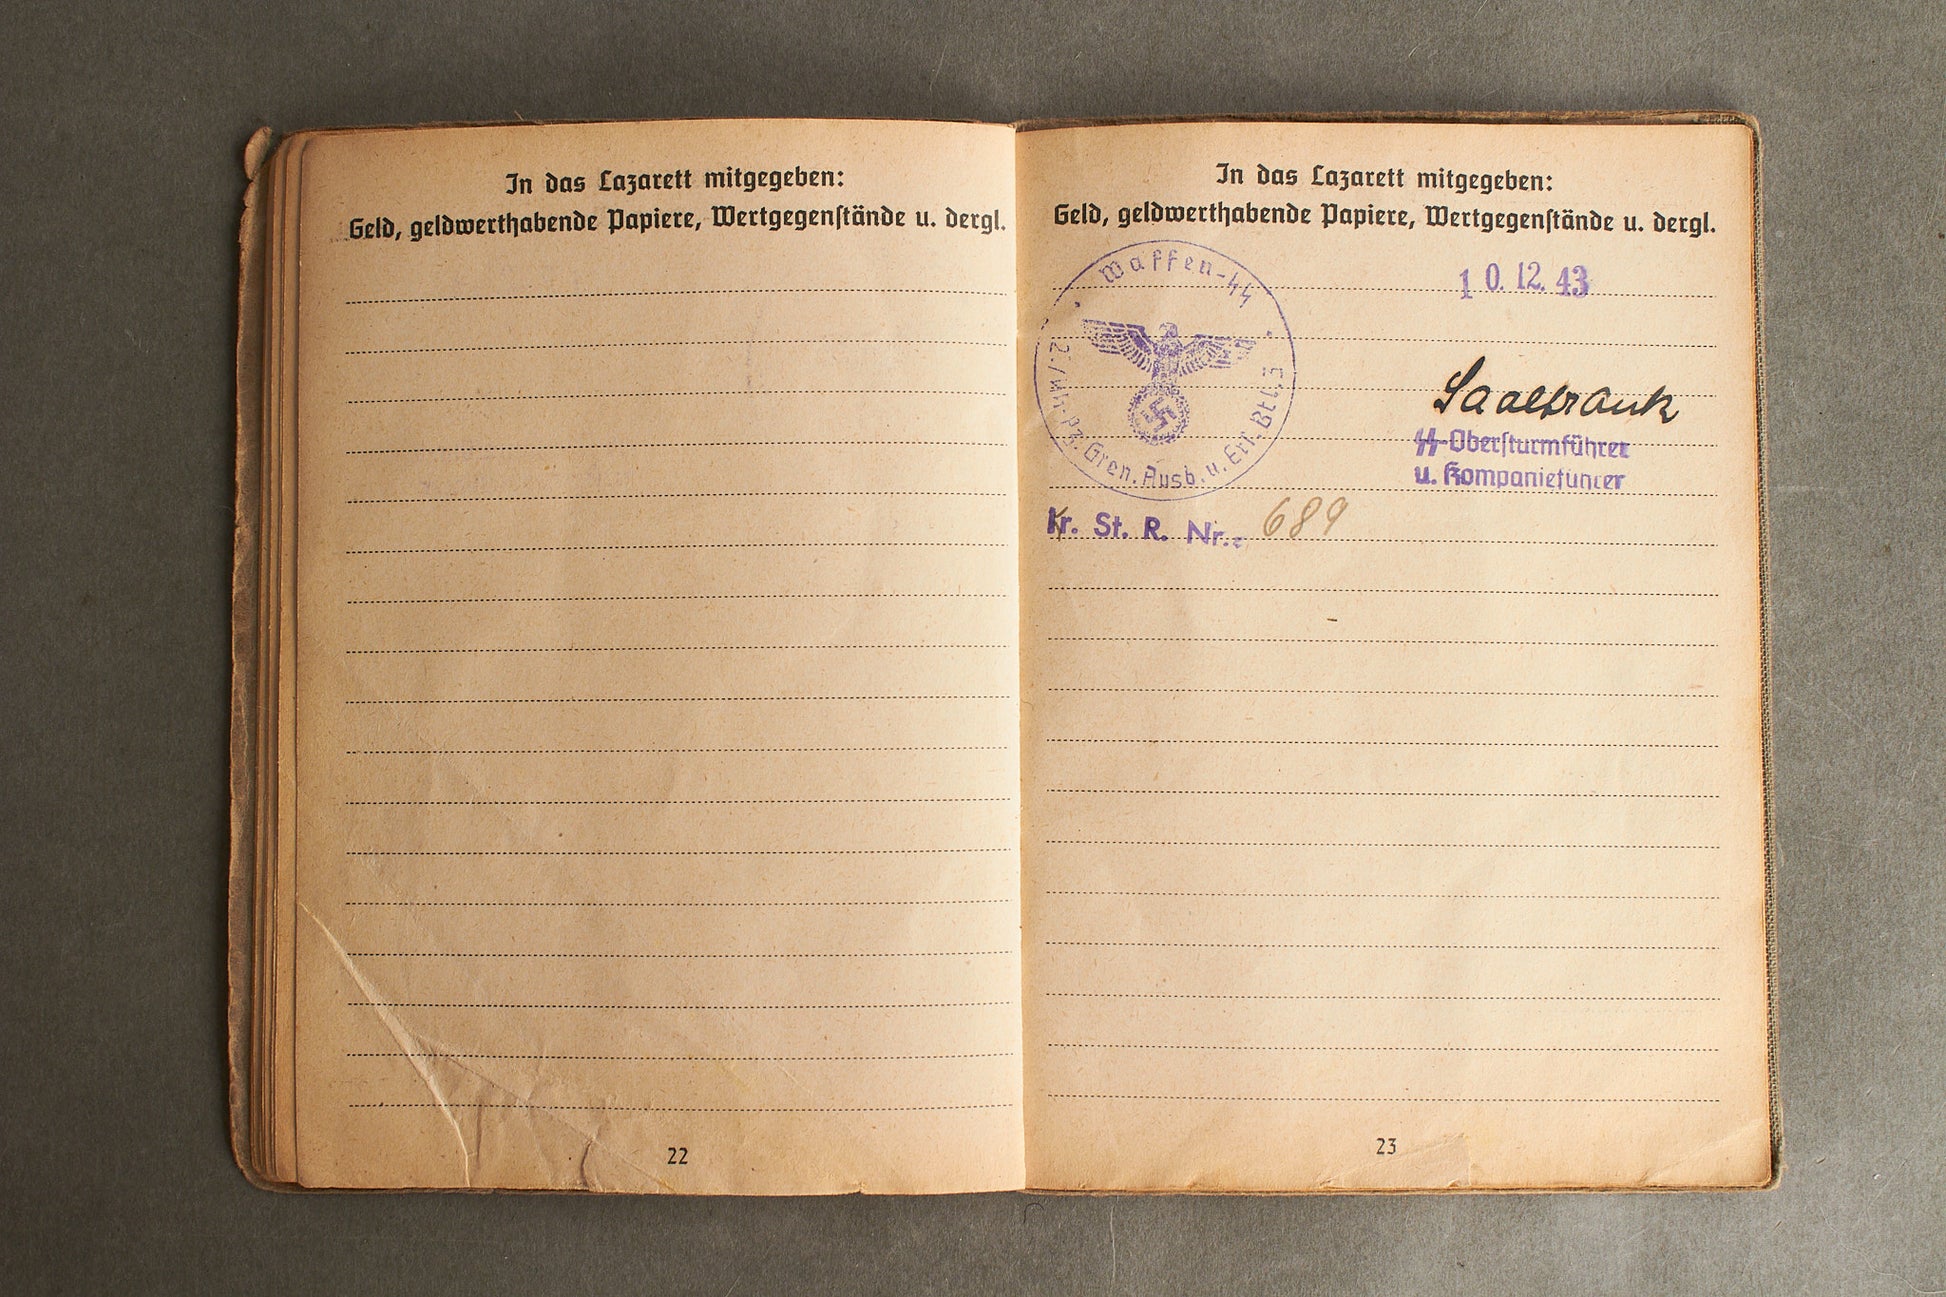 In das Lazarett mitgegeben:
Geld, geldwerthabende Papiere, Wertgegenstände u. dergl.
22
In das Lazarett mitgegeben:
Geld, geldwerthabende Papiere, Wertgegenstände u. dergl.
Waffen-SS
Pz. Gren. Ausb. u. Ers. Btl. 3
10.12.43
Saalfrank
SS-Obersturmführer
u. Kompanieführer
Kr. St. R. Nr.: 689
23